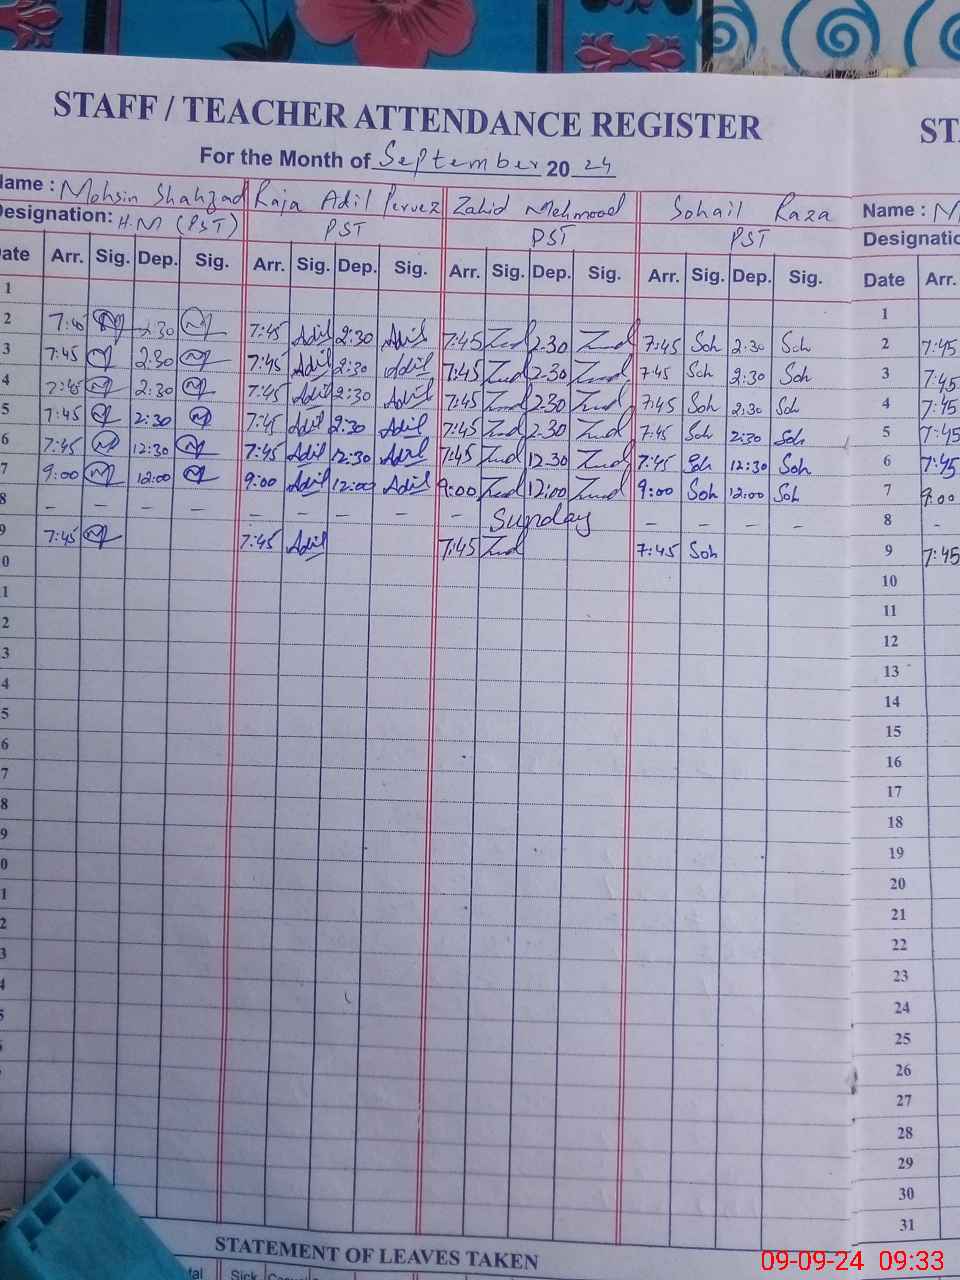 STAFF / TEACHER ATTENDANCE REGISTER
ST
For the Month of September 2024
Name : Mohsin Shahzad Raja Adil Pervez Zahid Mehmood Sohail Raza Name : M
Designation: H.M (PST) PST PST PST Designatio
Date Arr. Sig. Dep. Sig. Arr. Sig. Dep. Sig. Arr. Sig. Dep. Sig. Arr. Sig. Dep. Sig. Date Arr.
1 1
2 7:40 2:30 7:45 Adil 2:30 Adil 7:45 2:30 7:45 Soh 2:30 Soh 2 7:45
3 7:45 2:30 7:45 Adil 2:30 Adil 7:45 2:30 7:45 Soh 2:30 Soh 3 7:45
4 7:45 2:30 7:45 Adil 2:30 Adil 7:45 2:30 7:45 Soh 2:30 Soh 4 7:45
5 7:45 2:30 7:45 Adil 2:30 Adil 7:45 2:30 7:45 Soh 2:30 Soh 5 7:45
6 7:45 12:30 7:45 Adil 12:30 Adil 7:45 12:30 7:45 Soh 12:30 Soh 6 7:45
7 9:00 12:00 9:00 Adil 12:00 Adil 9:00 12:00 9:00 Soh 12:00 Soh 7 9:00
8 – – – – – – – – – Sunday – – – – 8 –
9 7:45 7:45 Adil 7:45 7:45 Soh 9 7:45
0 10
1 11
2 12
3 13
4 14
5 15
6 16
7 17
8 18
9 19
0 20
1 21
2 22
3 23
4 24
5 25
26
27
28
29
30
31
STATEMENT OF LEAVES TAKEN
tal Sick
09-09-24 09:33